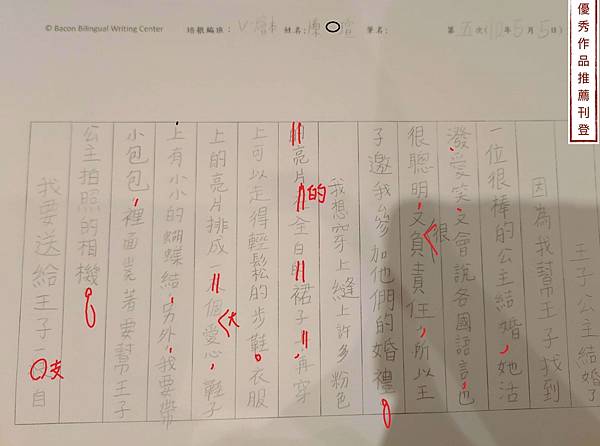 優秀作品推薦刊登
© Bacon Bilingual Writing Center
培根編班： 姓名:陳 瑄 筆名:
第五次(110年5月5日)
王子公主結婚了
因為我幫王子找到
一位很棒的公主結婚，她活
潑、愛笑，又會說各國語言，也
很聰明，又很負責任，所以王
子邀我參加他們的婚禮。
我想穿上縫上許多粉色
的亮片的全白的裙子，再穿
上可以走得輕鬆的步鞋。衣服
上的亮片排成一個大愛心，鞋子
上有小小的蝴蝶結，另外，我要帶
小包包，裡面裝著要幫王子
公主拍照的相機。
我要送給王子一支自